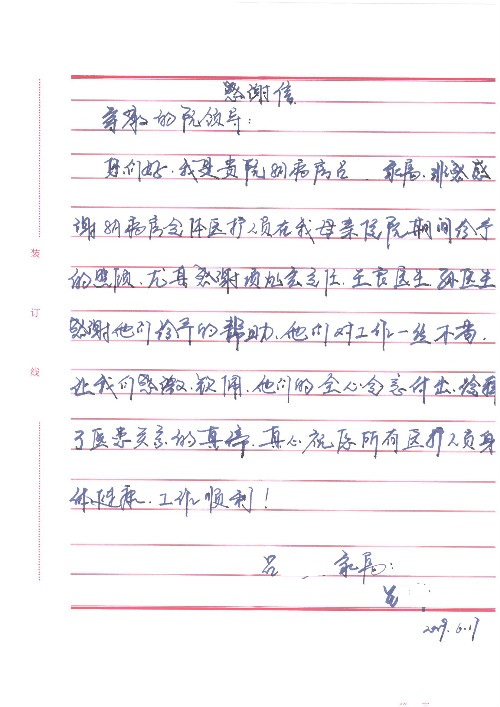 感谢信
尊敬的院领导:
你们好.我是贵院 病房吕 家属.非常感
谢 病房全体医护人员在我母亲住院期间给予
的照顾.尤其感谢 主任.王 医生 孙医生
感谢他们给予的帮助.他们对工作一丝不苟.
让我们感激.钦佩.他们的全心全意付出.诠释
了医患关系的真谛.真心祝愿所有医护人员身
体健康.工作顺利!
吕 家属:
吕
2019.6.17
装
订
线